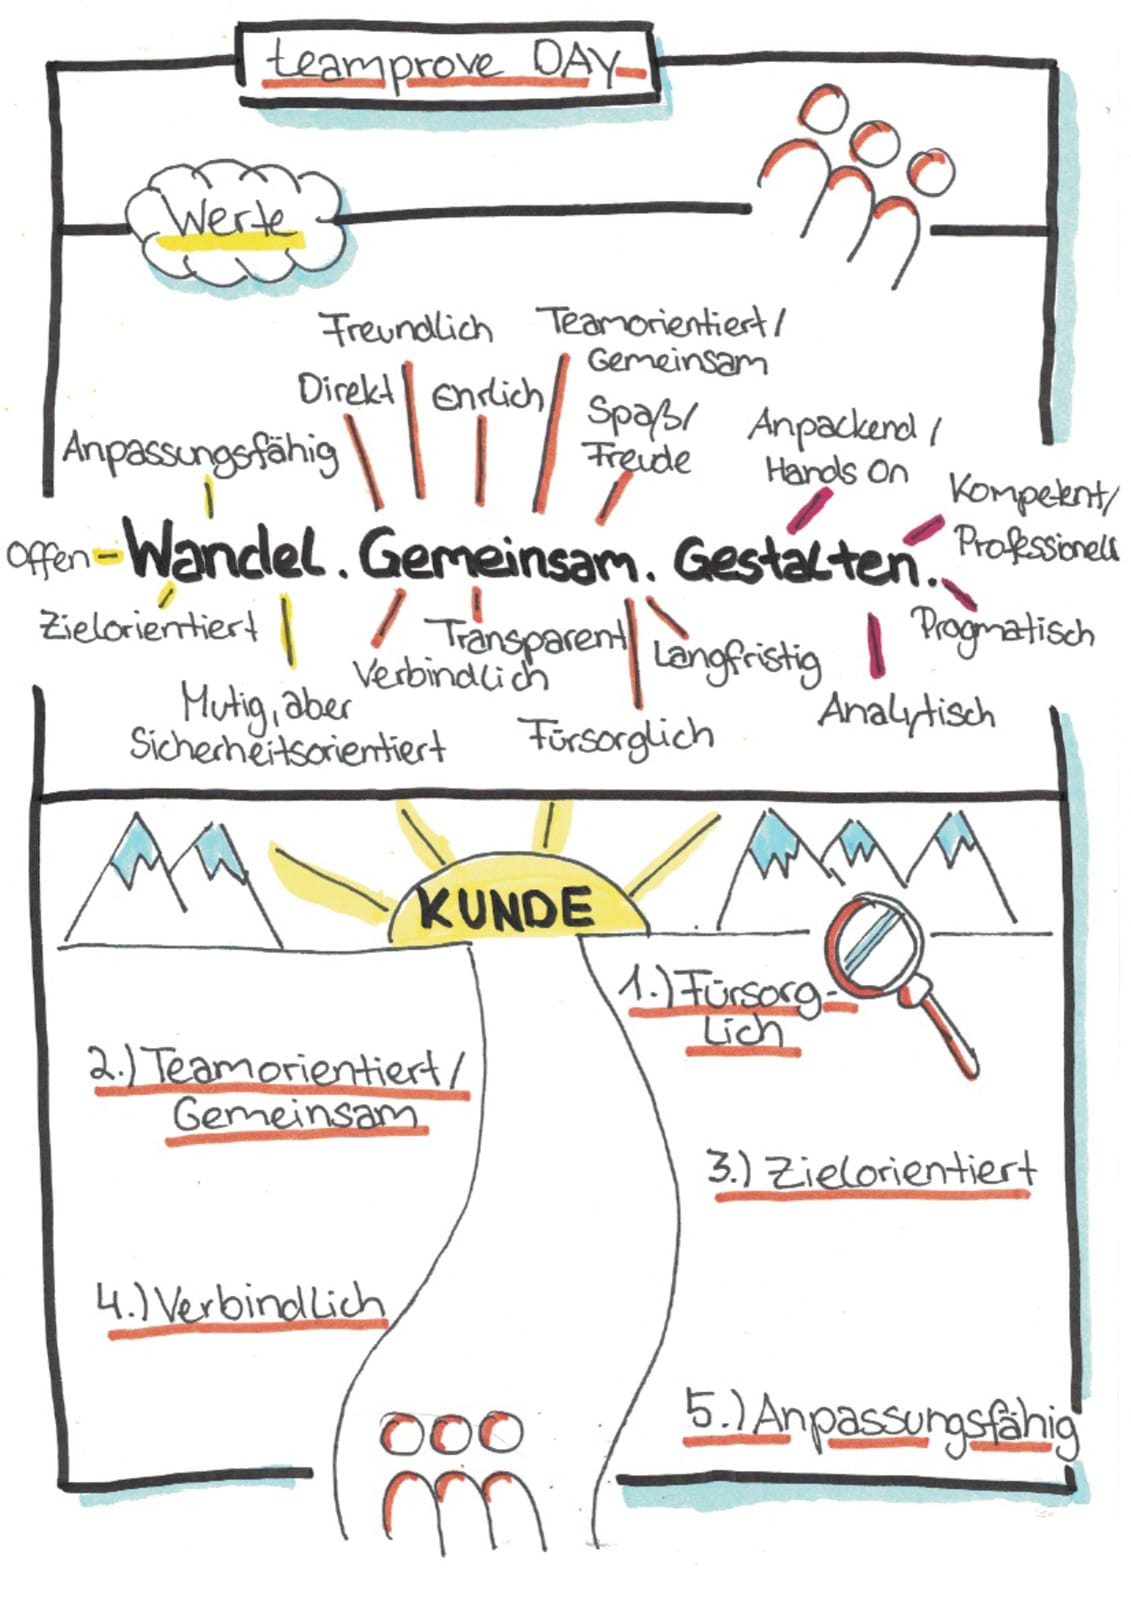 teamprove DAY
Werte
Freundlich
Teamorientiert/
Gemeinsam
Direkt
Ehrlich
Spaß/
Freude
Anpackend/
Hands On
Anpassungsfähig
Kompetent/
Professionell
Offen
Wandel. Gemeinsam. Gestalten.
Zielorientiert
Transparent
Verbindlich
Langfristig
Pragmatisch
Mutig, aber
Sicherheitsorientiert
Fürsorglich
Analytisch
KUNDE
1.) Fürsorg-
lich
2.) Teamorientiert/
Gemeinsam
3.) Zielorientiert
4.) Verbindlich
5.) Anpassungsfähig